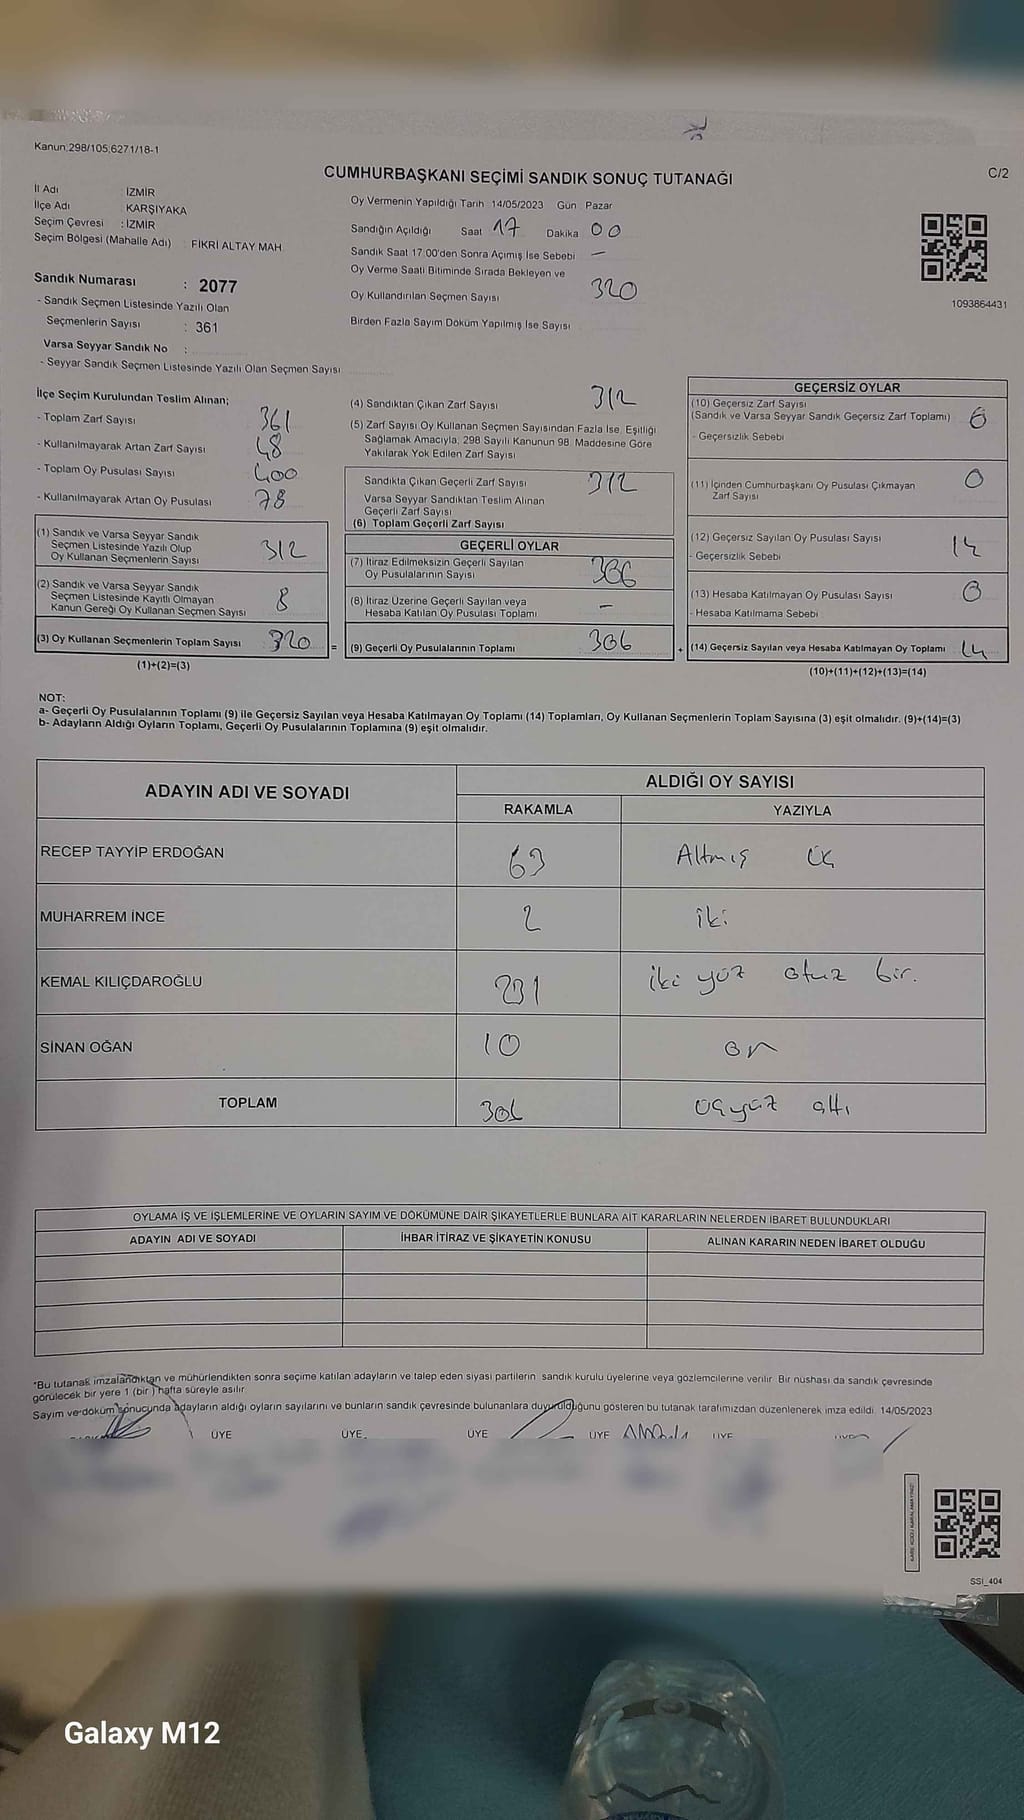 Kanun:298/105,6271/18-1
CUMHURBAŞKANI SEÇİMİ SANDIK SONUÇ TUTANAĞI
C/2
İl Adı : İZMİR
İlçe Adı : KARŞIYAKA
Seçim Çevresi : İZMİR
Seçim Bölgesi (Mahalle Adı) : FİKRİ ALTAY MAH
Sandık Numarası : 2077
- Sandık Seçmen Listesinde Yazılı Olan
Seçmenlerin Sayısı : 361
Varsa Seyyar Sandık No :
- Seyyar Sandık Seçmen Listesinde Yazılı Olan Seçmen Sayısı
Oy Vermenin Yapıldığı Tarih 14/05/2023 Gün Pazar
Sandığın Açıldığı Saat 17 Dakika 00
Sandık Saat 17:00'den Sonra Açımış İse Sebebi —
Oy Verme Saati Bitiminde Sırada Bekleyen ve
Oy Kullandırılan Seçmen Sayısı 320
Birden Fazla Sayım Döküm Yapılmış İse Sayısı
1093864431
İlçe Seçim Kurulundan Teslim Alınan;
- Toplam Zarf Sayısı 361
- Kullanılmayarak Artan Zarf Sayısı 48
- Toplam Oy Pusulası Sayısı 400
- Kullanılmayarak Artan Oy Pusulası 78
(1) Sandık ve Varsa Seyyar Sandık
Seçmen Listesinde Yazılı Olup
Oy Kullanan Seçmenlerin Sayısı 312
(2) Sandık ve Varsa Seyyar Sandık
Seçmen Listesinde Kayıtlı Olmayan
Kanun Gereği Oy Kullanan Seçmen Sayısı 8
(3) Oy Kullanan Seçmenlerin Toplam Sayısı 320
(1)+(2)=(3)
(4) Sandıktan Çıkan Zarf Sayısı 312
(5) Zarf Sayısı Oy Kullanan Seçmen Sayısından Fazla İse, Eşitliği
Sağlamak Amacıyla, 298 Sayılı Kanunun 98. Maddesine Göre
Yakılarak Yok Edilen Zarf Sayısı
Sandıkta Çıkan Geçerli Zarf Sayısı 312
Varsa Seyyar Sandıktan Teslim Alınan
Geçerli Zarf Sayısı
(6) Toplam Geçerli Zarf Sayısı
GEÇERLİ OYLAR
(7) İtiraz Edilmeksizin Geçerli Sayılan
Oy Pusulalarının Sayısı 306
(8) İtiraz Üzerine Geçerli Sayılan veya
Hesaba Katılan Oy Pusulası Toplamı —
= (9) Geçerli Oy Pusulalarının Toplamı 306
GEÇERSİZ OYLAR
(10) Geçersiz Zarf Sayısı
(Sandık ve Varsa Seyyar Sandık Geçersiz Zarf Toplamı) 0
- Geçersizlik Sebebi
(11) İçinden Cumhurbaşkanı Oy Pusulası Çıkmayan
Zarf Sayısı 0
(12) Geçersiz Sayılan Oy Pusulası Sayısı 14
- Geçersizlik Sebebi
(13) Hesaba Katılmayan Oy Pusulası Sayısı 0
- Hesaba Katılmama Sebebi
+ (14) Geçersiz Sayılan veya Hesaba Katılmayan Oy Toplamı 14
(10)+(11)+(12)+(13)=(14)
NOT:
a- Geçerli Oy Pusulalarının Toplamı (9) ile Geçersiz Sayılan veya Hesaba Katılmayan Oy Toplamı (14) Toplamları, Oy Kullanan Seçmenlerin Toplam Sayısına (3) eşit olmalıdır. (9)+(14)=(3)
b- Adayların Aldığı Oyların Toplamı, Geçerli Oy Pusulalarının Toplamına (9) eşit olmalıdır.
ADAYIN ADI VE SOYADI ALDIĞI OY SAYISI
RAKAMLA YAZIYLA
RECEP TAYYİP ERDOĞAN 63 Altmış üç
MUHARREM İNCE 2 iki
KEMAL KILIÇDAROĞLU 231 iki yüz otuz bir.
SİNAN OĞAN 10 on
TOPLAM 306 üçyüz altı
OYLAMA İŞ VE İŞLEMLERİNE VE OYLARIN SAYIM VE DÖKÜMÜNE DAİR ŞİKAYETLERLE BUNLARA AİT KARARLARIN NELERDEN İBARET BULUNDUKLARI
ADAYIN ADI VE SOYADI İHBAR İTİRAZ VE ŞİKAYETİN KONUSU ALINAN KARARIN NEDEN İBARET OLDUĞU
*Bu tutanak imzalandıktan ve mühürlendikten sonra seçime katılan adayların ve talep eden siyasi partilerin sandık kurulu üyelerine veya gözlemcilerine verilir. Bir nüshası da sandık çevresinde
görülecek bir yere 1 (bir) hafta süreyle asılır.
Sayım ve döküm sonucunda adayların aldığı oyların sayılarını ve bunların sandık çevresinde bulunanlara duyurulduğunu gösteren bu tutanak tarafımızdan düzenlenerek imza edildi. 14/05/2023
ÜYE ÜYE ÜYE ÜYE ÜYE
SSI_404
Galaxy M12